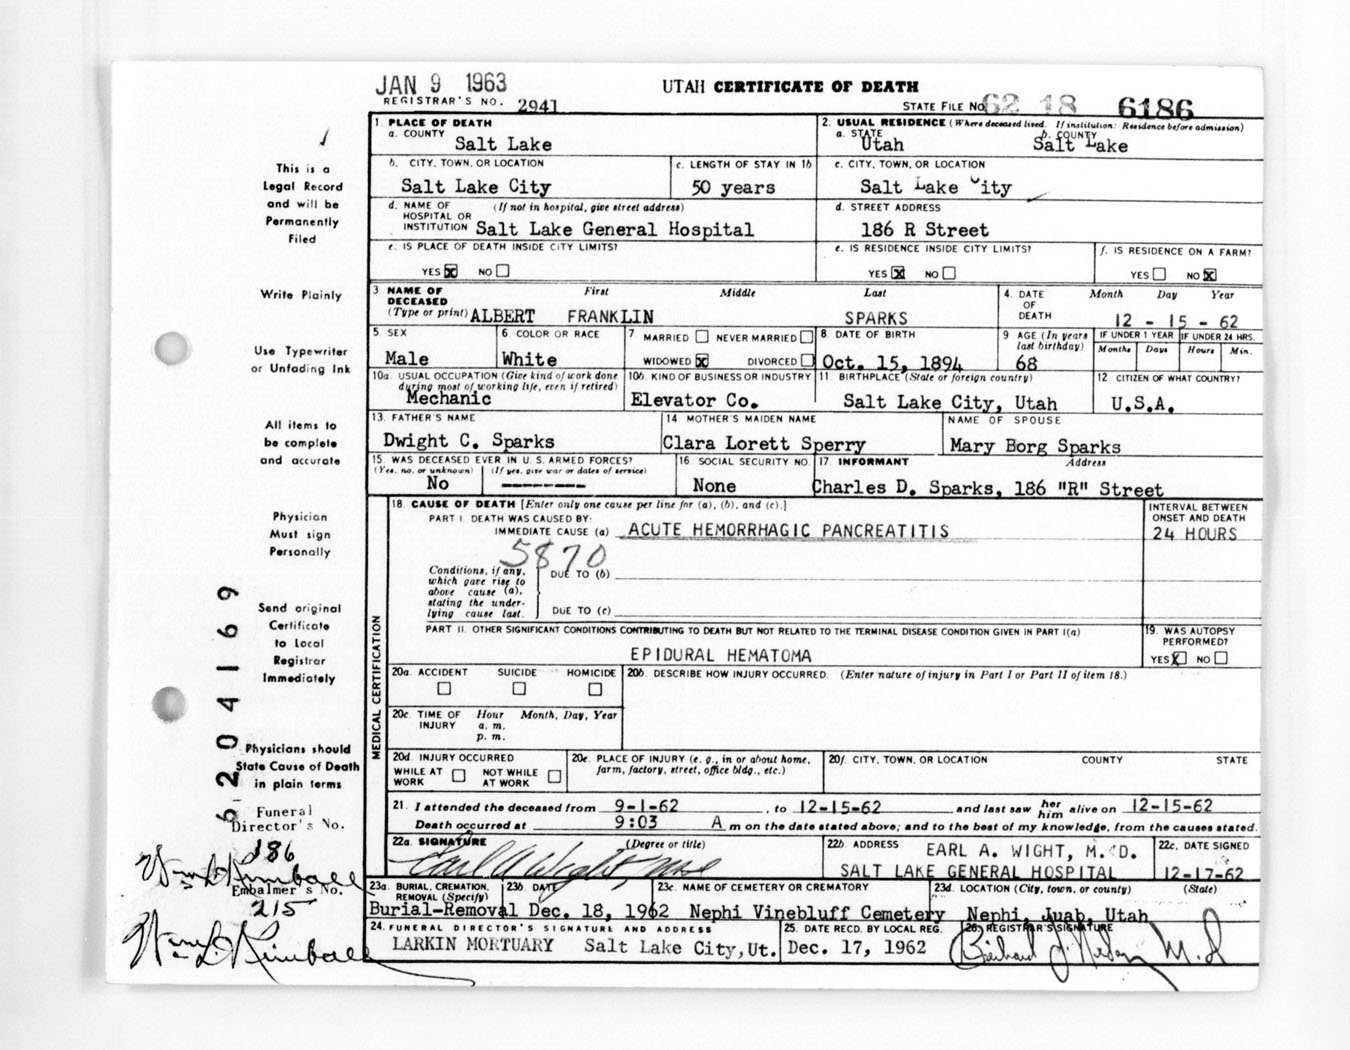 JAN 9 1963
UTAH CERTIFICATE OF DEATH
REGISTRAR'S NO. 2941
STATE FILE NO. 62 18 6186
1. PLACE OF DEATH
a. COUNTY
Salt Lake
2. USUAL RESIDENCE (Where deceased lived. If institution: Residence before admission)
a. STATE
Utah
b. COUNTY
Salt Lake
b. CITY, TOWN, OR LOCATION
Salt Lake City
c. LENGTH OF STAY IN 1b
50 years
c. CITY, TOWN, OR LOCATION
Salt Lake City
d. NAME OF HOSPITAL OR INSTITUTION (If not in hospital, give street address)
Salt Lake General Hospital
d. STREET ADDRESS
186 R Street
e. IS PLACE OF DEATH INSIDE CITY LIMITS?
YES X NO
e. IS RESIDENCE INSIDE CITY LIMITS?
YES X NO
f. IS RESIDENCE ON A FARM?
YES NO X
3 NAME OF DECEASED (Type or print)
First Middle Last
ALBERT FRANKLIN SPARKS
4. DATE OF DEATH
Month Day Year
12 - 15 - 62
5. SEX
Male
6 COLOR OR RACE
White
7 MARRIED NEVER MARRIED
WIDOWED X DIVORCED
8. DATE OF BIRTH
Oct. 15, 1894
9 AGE (In years last birthday)
68
IF UNDER 1 YEAR
Months Days
IF UNDER 24 HRS.
Hours Min.
10a. USUAL OCCUPATION (Give kind of work done during most of working life, even if retired)
Mechanic
10b. KIND OF BUSINESS OR INDUSTRY
Elevator Co.
11. BIRTHPLACE (State or foreign country)
Salt Lake City, Utah
12 CITIZEN OF WHAT COUNTRY?
U.S.A.
13. FATHER'S NAME
Dwight C. Sparks
14. MOTHER'S MAIDEN NAME
Clara Lorett Sperry
NAME OF SPOUSE
Mary Borg Sparks
15. WAS DECEASED EVER IN U.S. ARMED FORCES?
(Yes, no, or unknown) (If yes, give war or dates of service)
No -------
16 SOCIAL SECURITY NO.
None
17. INFORMANT Address
Charles D. Sparks, 186 "R" Street
MEDICAL CERTIFICATION
18. CAUSE OF DEATH [Enter only one cause per line for (a), (b), and (c).]
PART I. DEATH WAS CAUSED BY:
IMMEDIATE CAUSE (a) ACUTE HEMORRHAGIC PANCREATITIS
INTERVAL BETWEEN ONSET AND DEATH
24 HOURS
5870
Conditions, if any, which gave rise to above cause (a), stating the underlying cause last.
DUE TO (b)
DUE TO (c)
PART II. OTHER SIGNIFICANT CONDITIONS CONTRIBUTING TO DEATH BUT NOT RELATED TO THE TERMINAL DISEASE CONDITION GIVEN IN PART I(a)
EPIDURAL HEMATOMA
19. WAS AUTOPSY PERFORMED?
YES X NO
20a. ACCIDENT SUICIDE HOMICIDE
20b. DESCRIBE HOW INJURY OCCURRED. (Enter nature of injury in Part I or Part II of item 18.)
20c. TIME OF INJURY Hour a. m. p. m. Month, Day, Year
20d. INJURY OCCURRED
WHILE AT WORK NOT WHILE AT WORK
20e. PLACE OF INJURY (e. g., in or about home, farm, factory, street, office bldg., etc.)
20f. CITY, TOWN, OR LOCATION COUNTY STATE
21. I attended the deceased from 9-1-62, to 12-15-62 and last saw her him alive on 12-15-62
Death occurred at 9:03 A m on the date stated above; and to the best of my knowledge, from the causes stated.
22a. SIGNATURE (Degree or title)
Earl A Wight, MD
22b. ADDRESS
EARL A. WIGHT, M. D.
SALT LAKE GENERAL HOSPITAL
22c. DATE SIGNED
12-17-62
23a. BURIAL, CREMATION, REMOVAL (Specify)
Burial-Removal
23b. DATE
Dec. 18, 1962
23c. NAME OF CEMETERY OR CREMATORY
Nephi Vinebluff Cemetery
23d. LOCATION (City, town, or county) (State)
Nephi, Juab, Utah
24. FUNERAL DIRECTOR'S SIGNATURE AND ADDRESS
LARKIN MORTUARY Salt Lake City, Ut.
25. DATE RECD. BY LOCAL REG.
Dec. 17, 1962
26. REGISTRAR'S SIGNATURE
M.D
This is a
Legal Record
and will be
Permanently
Filed
Write Plainly
Use Typewriter
or Unfading Ink
All items to
be complete
and accurate
Physician
Must sign
Personally
Send original
Certificate
to Local
Registrar
Immediately
Physicians should
State Cause of Death
in plain terms
62 04169
Funeral
Director's No.
186
Wm D Kimball
Embalmer's No.
215
Wm D Kimball